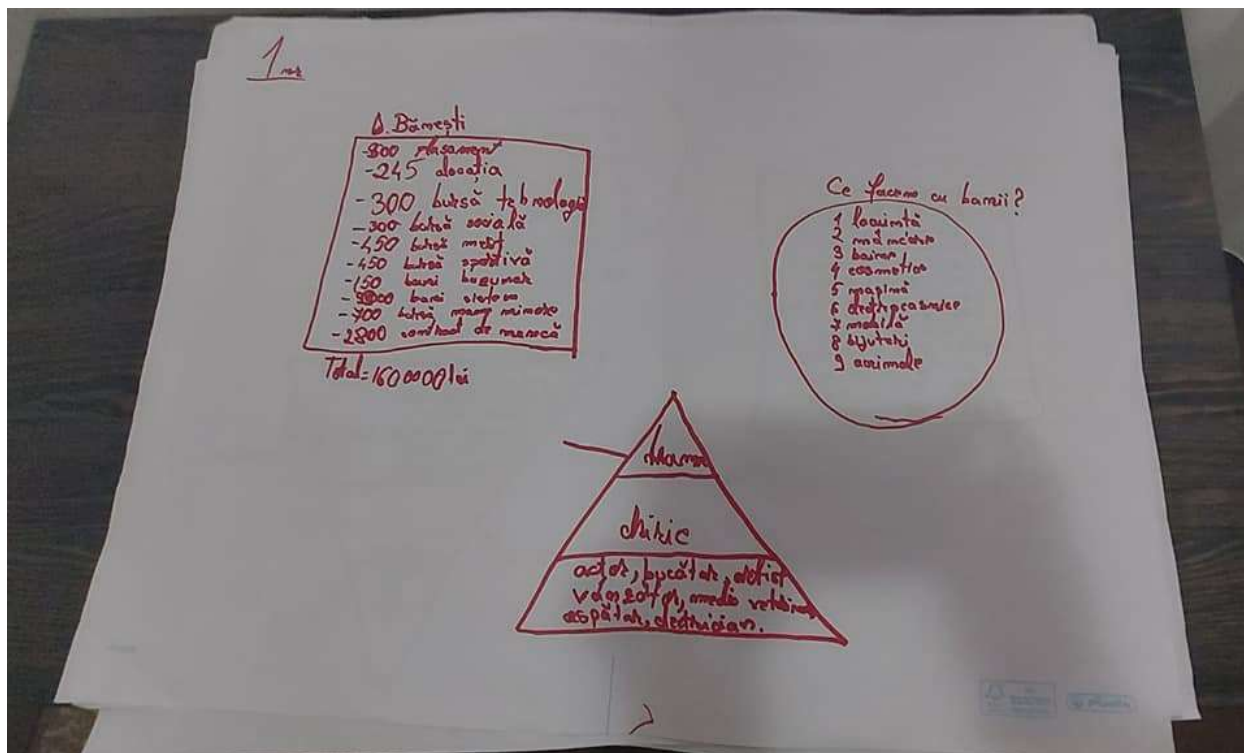 1
D. Bănești
-800 plasament
-245 alocația
-300 bursă tehnologic
-300 bursă socială
-450 bursă merit
-450 bursă sportivă
-150 bani buzunar
bani sistem
-700 bursă mame minore
-2800 contract de muncă
Total=160000 lei
Ce facem cu banii?
1 locuință
2 mâncare
3 haine
4 cosmetice
5 mașină
6 electrocasnice
7 mobilă
8 bijuteri
9 animale
actor, bucătar, artist
vânzător, medic veterinar
ospătar, electrician.